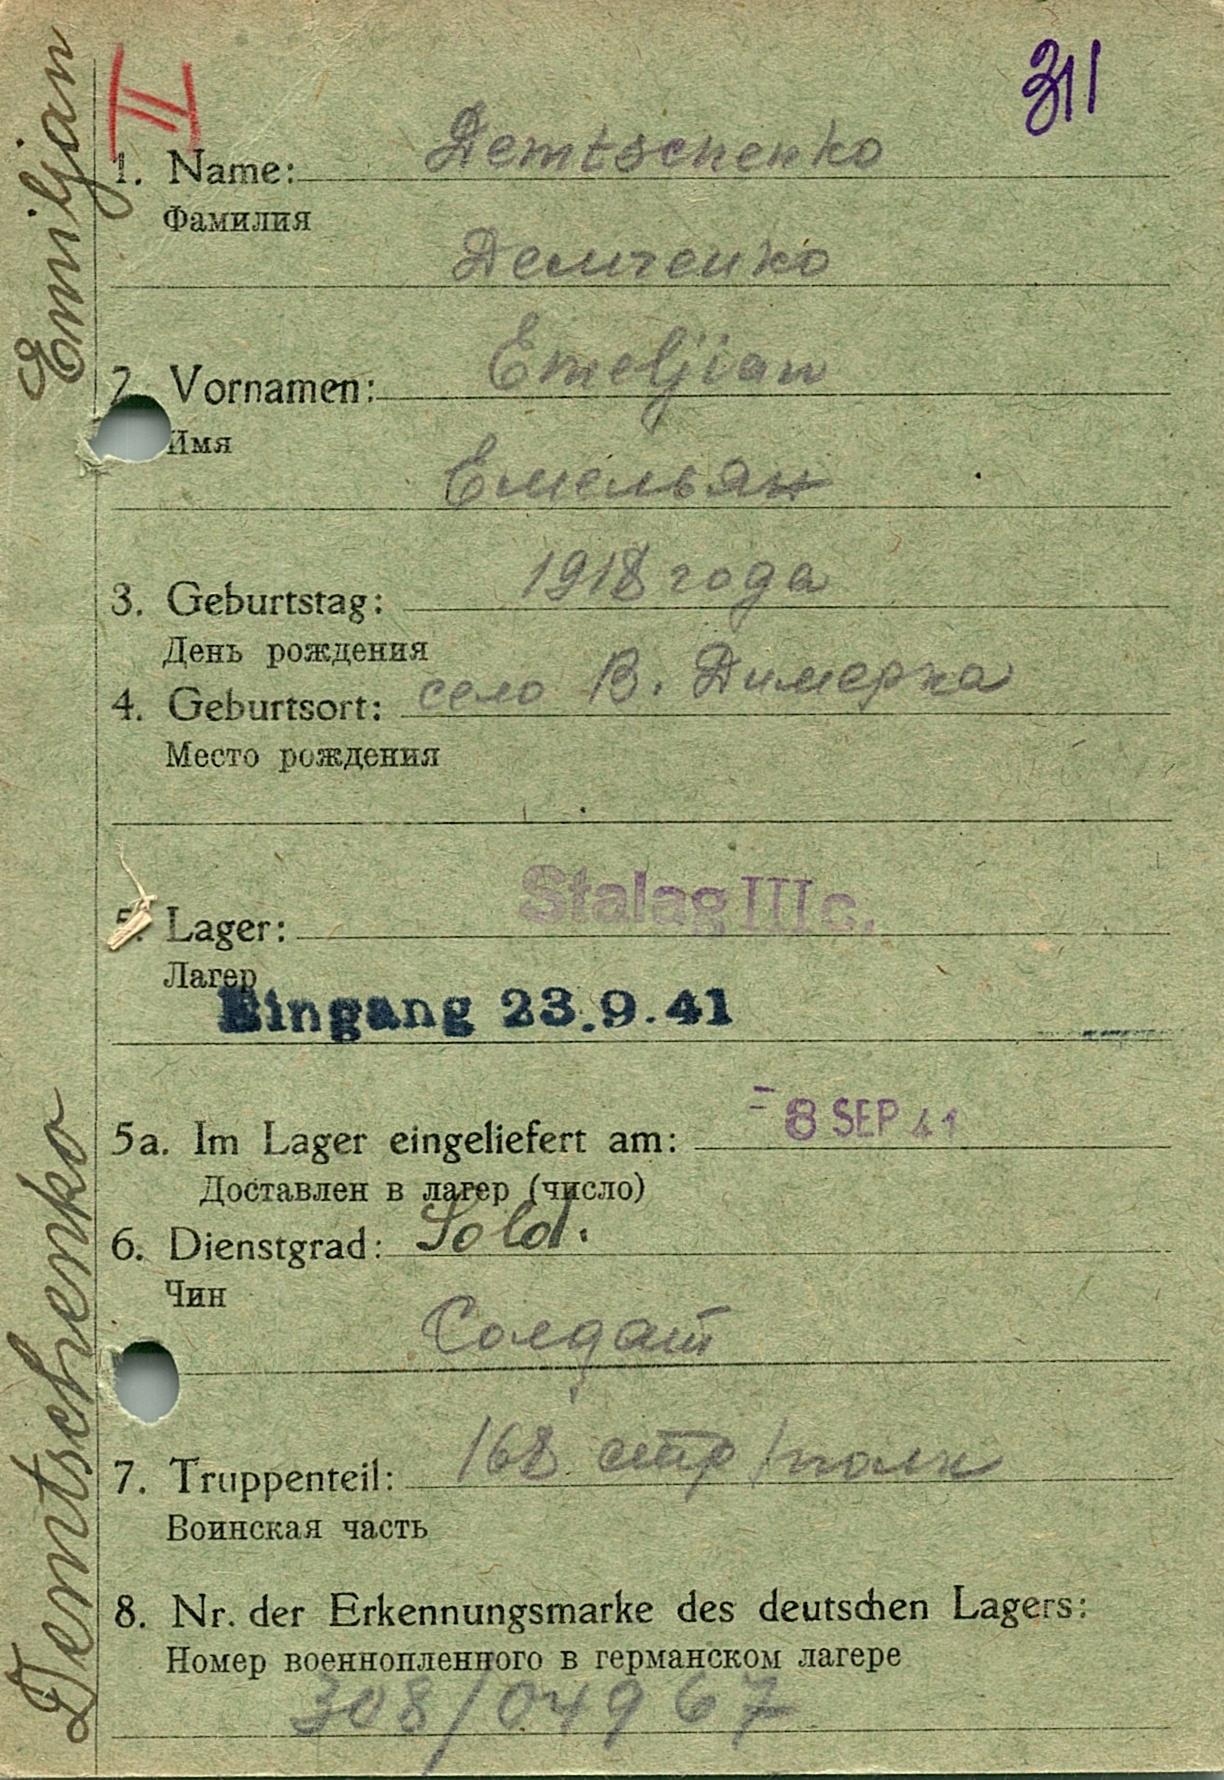 II
311
1. Name: Demtschenko
Фамилия
Демченко
2. Vornamen: Emeljian
Имя
Емельян
3. Geburtstag: 1918 года
День рождения
4. Geburtsort: село В. Димерка
Место рождения
5. Lager: Stalag III c.
Лагер
Eingang 23.9.41
5a. Im Lager eingeliefert am: -8 SEP 41
Доставлен в лагер (число)
6. Dienstgrad: Sold.
Чин
Солдат
7. Truppenteil: 168 стр/полк
Воинская часть
8. Nr. der Erkennungsmarke des deutschen Lagers:
Номер военнопленного в германском лагере
308/04967
Demtschenko Emiljan